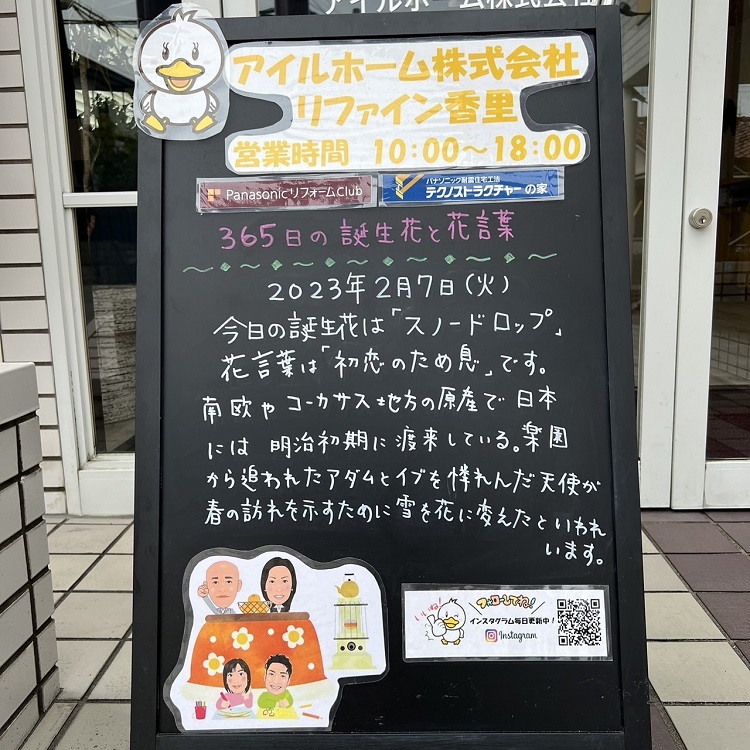 アイルホーム株式会社
アイルホーム株式会社
リファイン香里
営業時間 10:00～18:00
PanasonicリフォームClub
パナソニック耐震住宅工法
テクノストラクチャーの家
365日の誕生花と花言葉
2023年2月7日(火)
今日の誕生花は「スノードロップ」
花言葉は「初恋のため息」です。
南欧やコーカサス地方の原産で日本
には 明治初期に渡来している。楽園
から追われたアダムとイブを憐れんだ天使が
春の訪れを示すために雪を花に変えたといわれ
います。
いいね!
フォローしてね!
インスタグラム毎日更新中!
Instagram